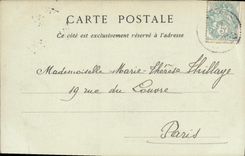 CARTE POSTALE
Ce côté est exclusivement réservé à l'adresse
Mademoiselle Marie-Thérèse Thillaye
19 rue du Louvre
Paris